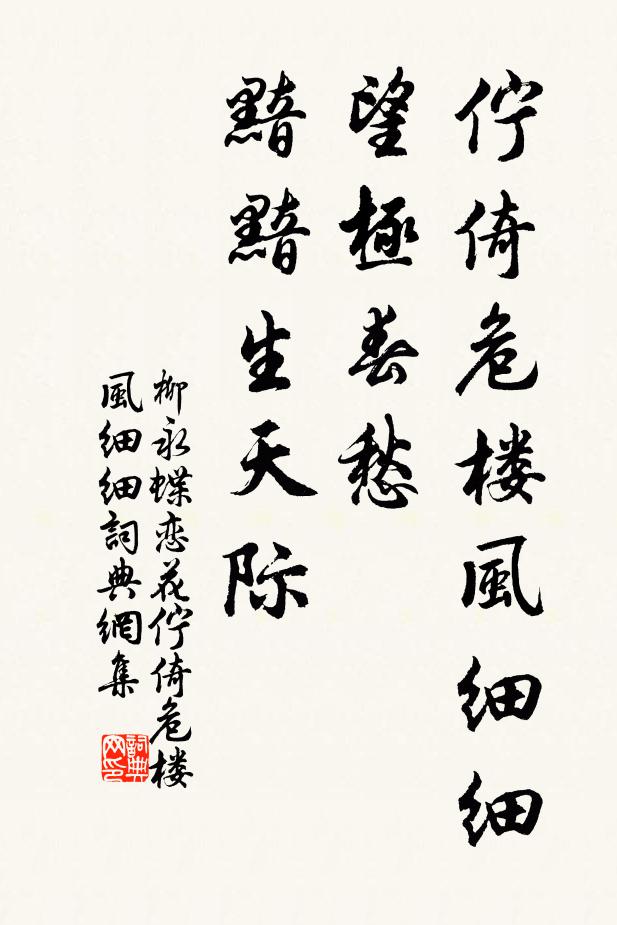 伫倚危楼風细细
望極春愁
黯黯生天际
柳永蝶恋花伫倚危楼
風细细詞典網集
詞典网印